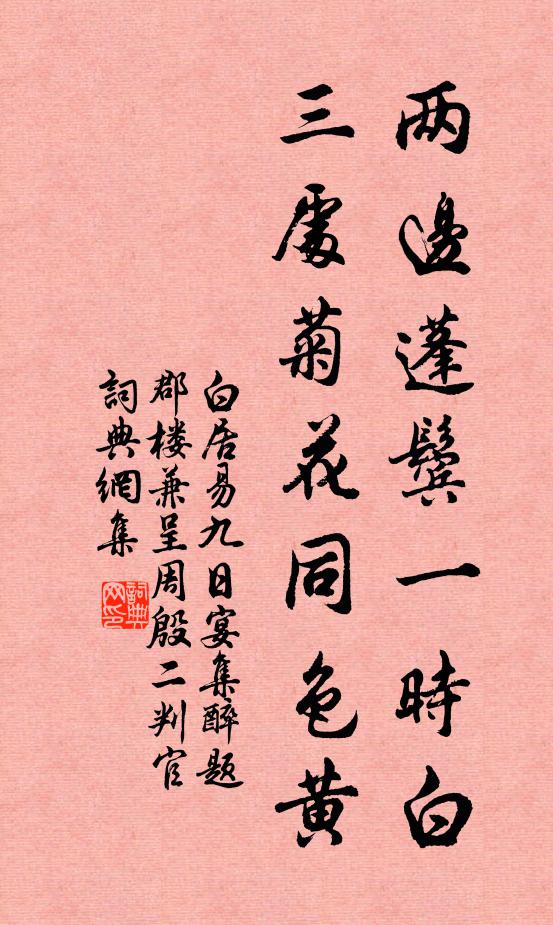 两邊蓬鬢一時白
三處菊花同色黄
白居易九日宴集醉題
郡楼兼呈周殷二判官
詞典網集
詞典
网印